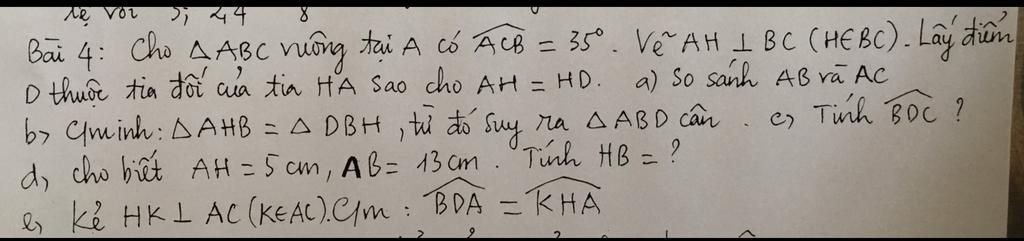 lệ với 5; 2,4 8
Bài 4: Cho △ABC vuông tại A có ACB = 35°. Vẽ AH ⊥ BC (H∈BC). Lấy điểm
D thuộc tia đối của tia HA sao cho AH = HD. a) So sánh AB và AC
b) C/minh: △AHB = △DBH, từ đó suy ra △ABD cân. c) Tính BDC ?
d) cho biết AH = 5 cm, AB = 13 cm. Tính HB = ?
e) Kẻ HK ⊥ AC (K∈AC). C/m : BDA = KHA